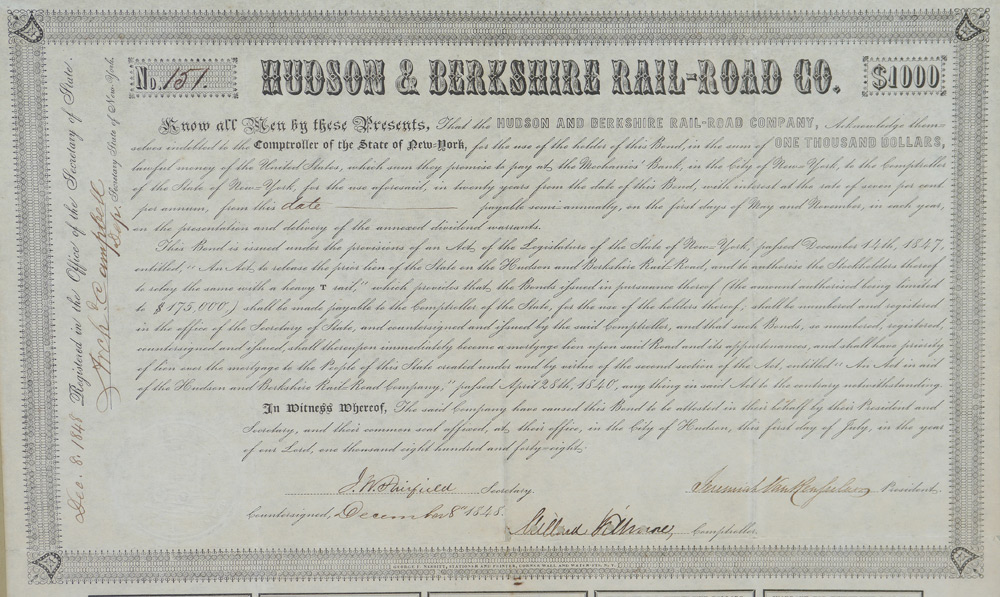 No. 151.
HUDSON & BERKSHIRE RAIL-ROAD CO.
$1000
Know all Men by these Presents, That the HUDSON AND BERKSHIRE RAIL-ROAD COMPANY, Acknowledge them-
selves indebted to the Comptroller of the State of New-York, for the use of the holder of this Bond, in the sum of ONE THOUSAND DOLLARS,
lawful money of the United States, which sum they promise to pay at the Mechanics' Bank, in the City of New-York, to the Comptroller
of the State of New-York, for the use aforesaid, in twenty years from the date of this Bond, with interest at the rate of seven per cent
per annum, from this date payable semi-annually, on the first days of May and November, in each year,
on the presentation and delivery of the annexed dividend warrants.
This Bond is issued under the provisions of an Act, of the Legislature of the State of New-York, passed December 14th, 1847,
entitled, "An Act, to release the prior lien of the State on the Hudson and Berkshire Rail-Road, and to authorise the Stockholders thereof
to relay the same with a heavy T rail," which provides that the Bonds issued in pursuance thereof (the amount authorised being limited
to $175,000,) shall be made payable to the Comptroller of the State, for the use of the holders thereof, shall be numbered and registered
in the office of the Secretary of State, and countersigned and issued by the said Comptroller, and that such Bonds, so numbered, registered,
countersigned and issued, shall thereupon immediately become a mortgage lien upon said Road and its appurtenances, and shall have priority
of lien over the mortgage to the People of this State created under and by virtue of the second section of the Act, entitled "An Act in aid
of the Hudson and Berkshire Rail-Road Company," passed April 28th, 1840, any thing in said Act to the contrary notwithstanding.
In Witness Whereof, The said Company have caused this Bond to be attested in their behalf by their President and
Secretary, and their common seal affixed, at their office, in the City of Hudson, this first day of July, in the year
of our Lord, one thousand eight hundred and forty-eight.
J. W. Fairfield Secretary.
Jeremiah Van Rensselaer President.
Countersigned, December 8 1848
Millard Fillmore, Comptroller.
Dec. 8. 1848 Registered in the Office of the Secretary of State.
Arch'd Campbell
Dep. Secretary State of New-York.
GEORGE F. NESBITT, STATIONER AND PRINTER, CORNER WALL AND WATER-STS. N.Y.